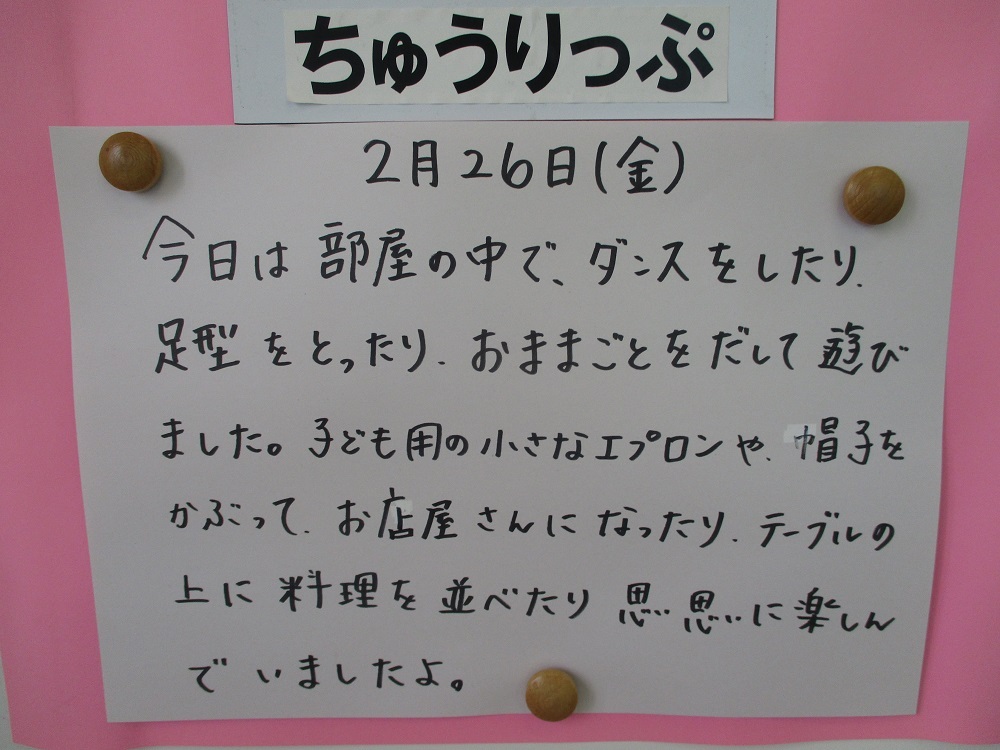 ちゅうりっぷ
2月26日(金)
今日は部屋の中で、ダンスをしたり、
足型をとったり、おままごとをだして遊び
ました。子ども用の小さなエプロンや、帽子を
かぶって、お店屋さんになったり、テーブルの
上に料理を並べたり思い思いに楽しん
でいましたよ。